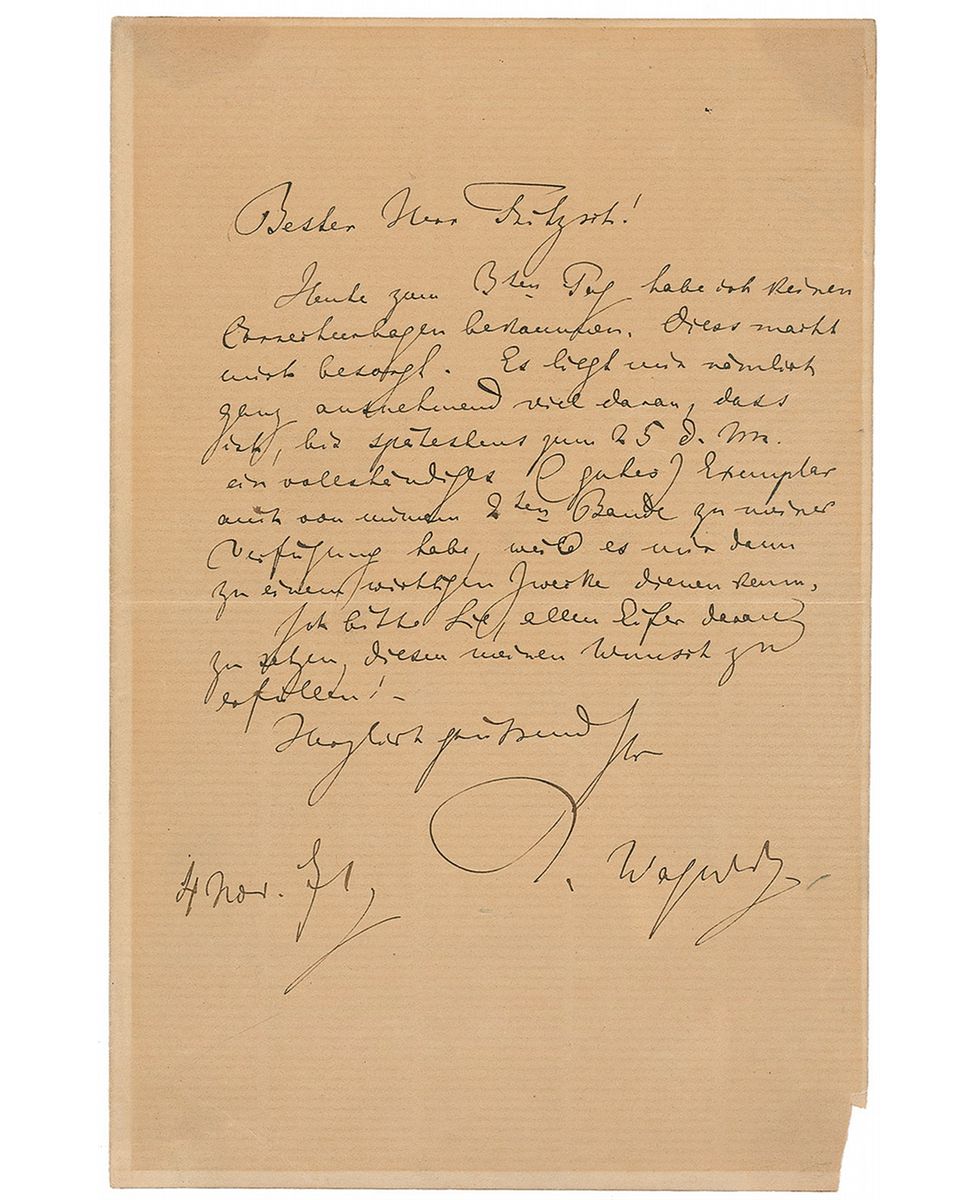 Bester Herr Fritzsch!
Heute zum 3ten Tag habe ich keinen
Correcturbogen bekommen. Diess macht
mich besorgt. Es liegt mir nämlich
ganz ausnehmend viel daran, dass
ich, bis spätestens zum 25 d. Mn.
ein vollständiges (gutes) Exemplar
auch von meinem 2ten Bande zu meiner
Verfügung habe, weil es mir dann
zu einem wichtigen Zwecke dienen kann.
Ich bitte Sie, allen Eifer daran
zu setzen, diesen meinen Wunsch zu
erfüllen! –
Herzlich grüssend Ihr
R. Wagner
4 Nov. 71,